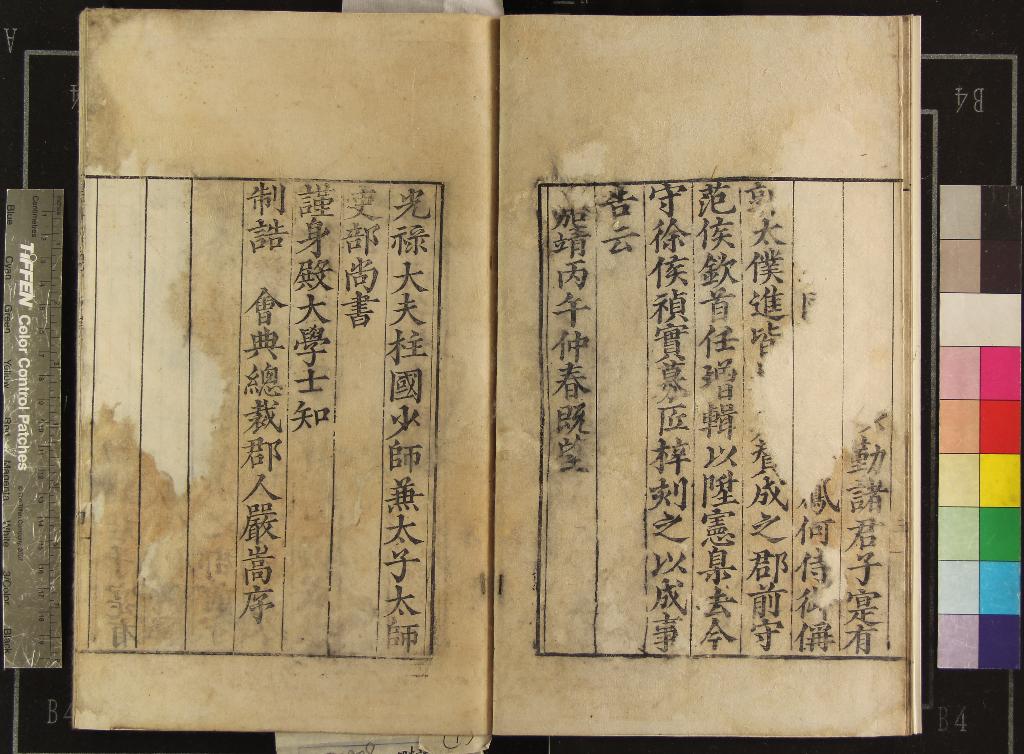 勤諸君子寔有
鳳何侍御傋
郭太僕進皆
賛成之郡前守
范侯欽首任增輯以陞憲臬去今
守徐侯禎實募匠梓刻之以成事
告云
嘉靖丙午仲春既望
光祿大夫柱國少師兼太子太師
吏部尚書
謹身殿大學士知
制誥 會典總裁郡人嚴嵩序
TIFFEN Color Control Patches
Centimetres
Blue
Cyan
Green
Yellow
Red
Magenta
White
3/Color
Black
A
B4
B4
B4